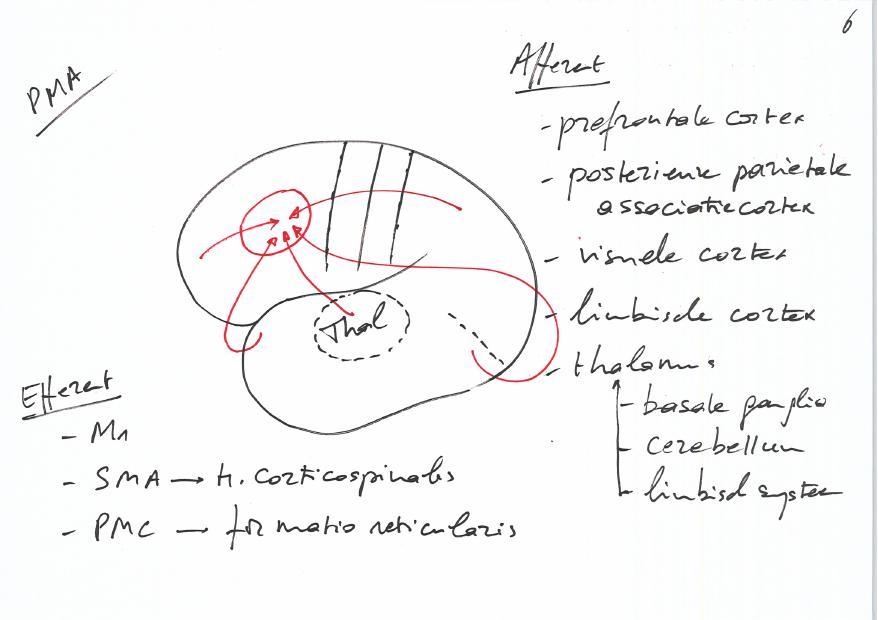 6
PMA
Afferent
- prefrontale cortex
- posterieure parietale
associatiecortex
- visuele cortex
- limbische cortex
- thalamus
- basale ganglia
- cerebellum
- limbisch systeem
Thal
Efferent
- M1
- SMA → tr. corticospinalis
- PMC → formatio reticularis